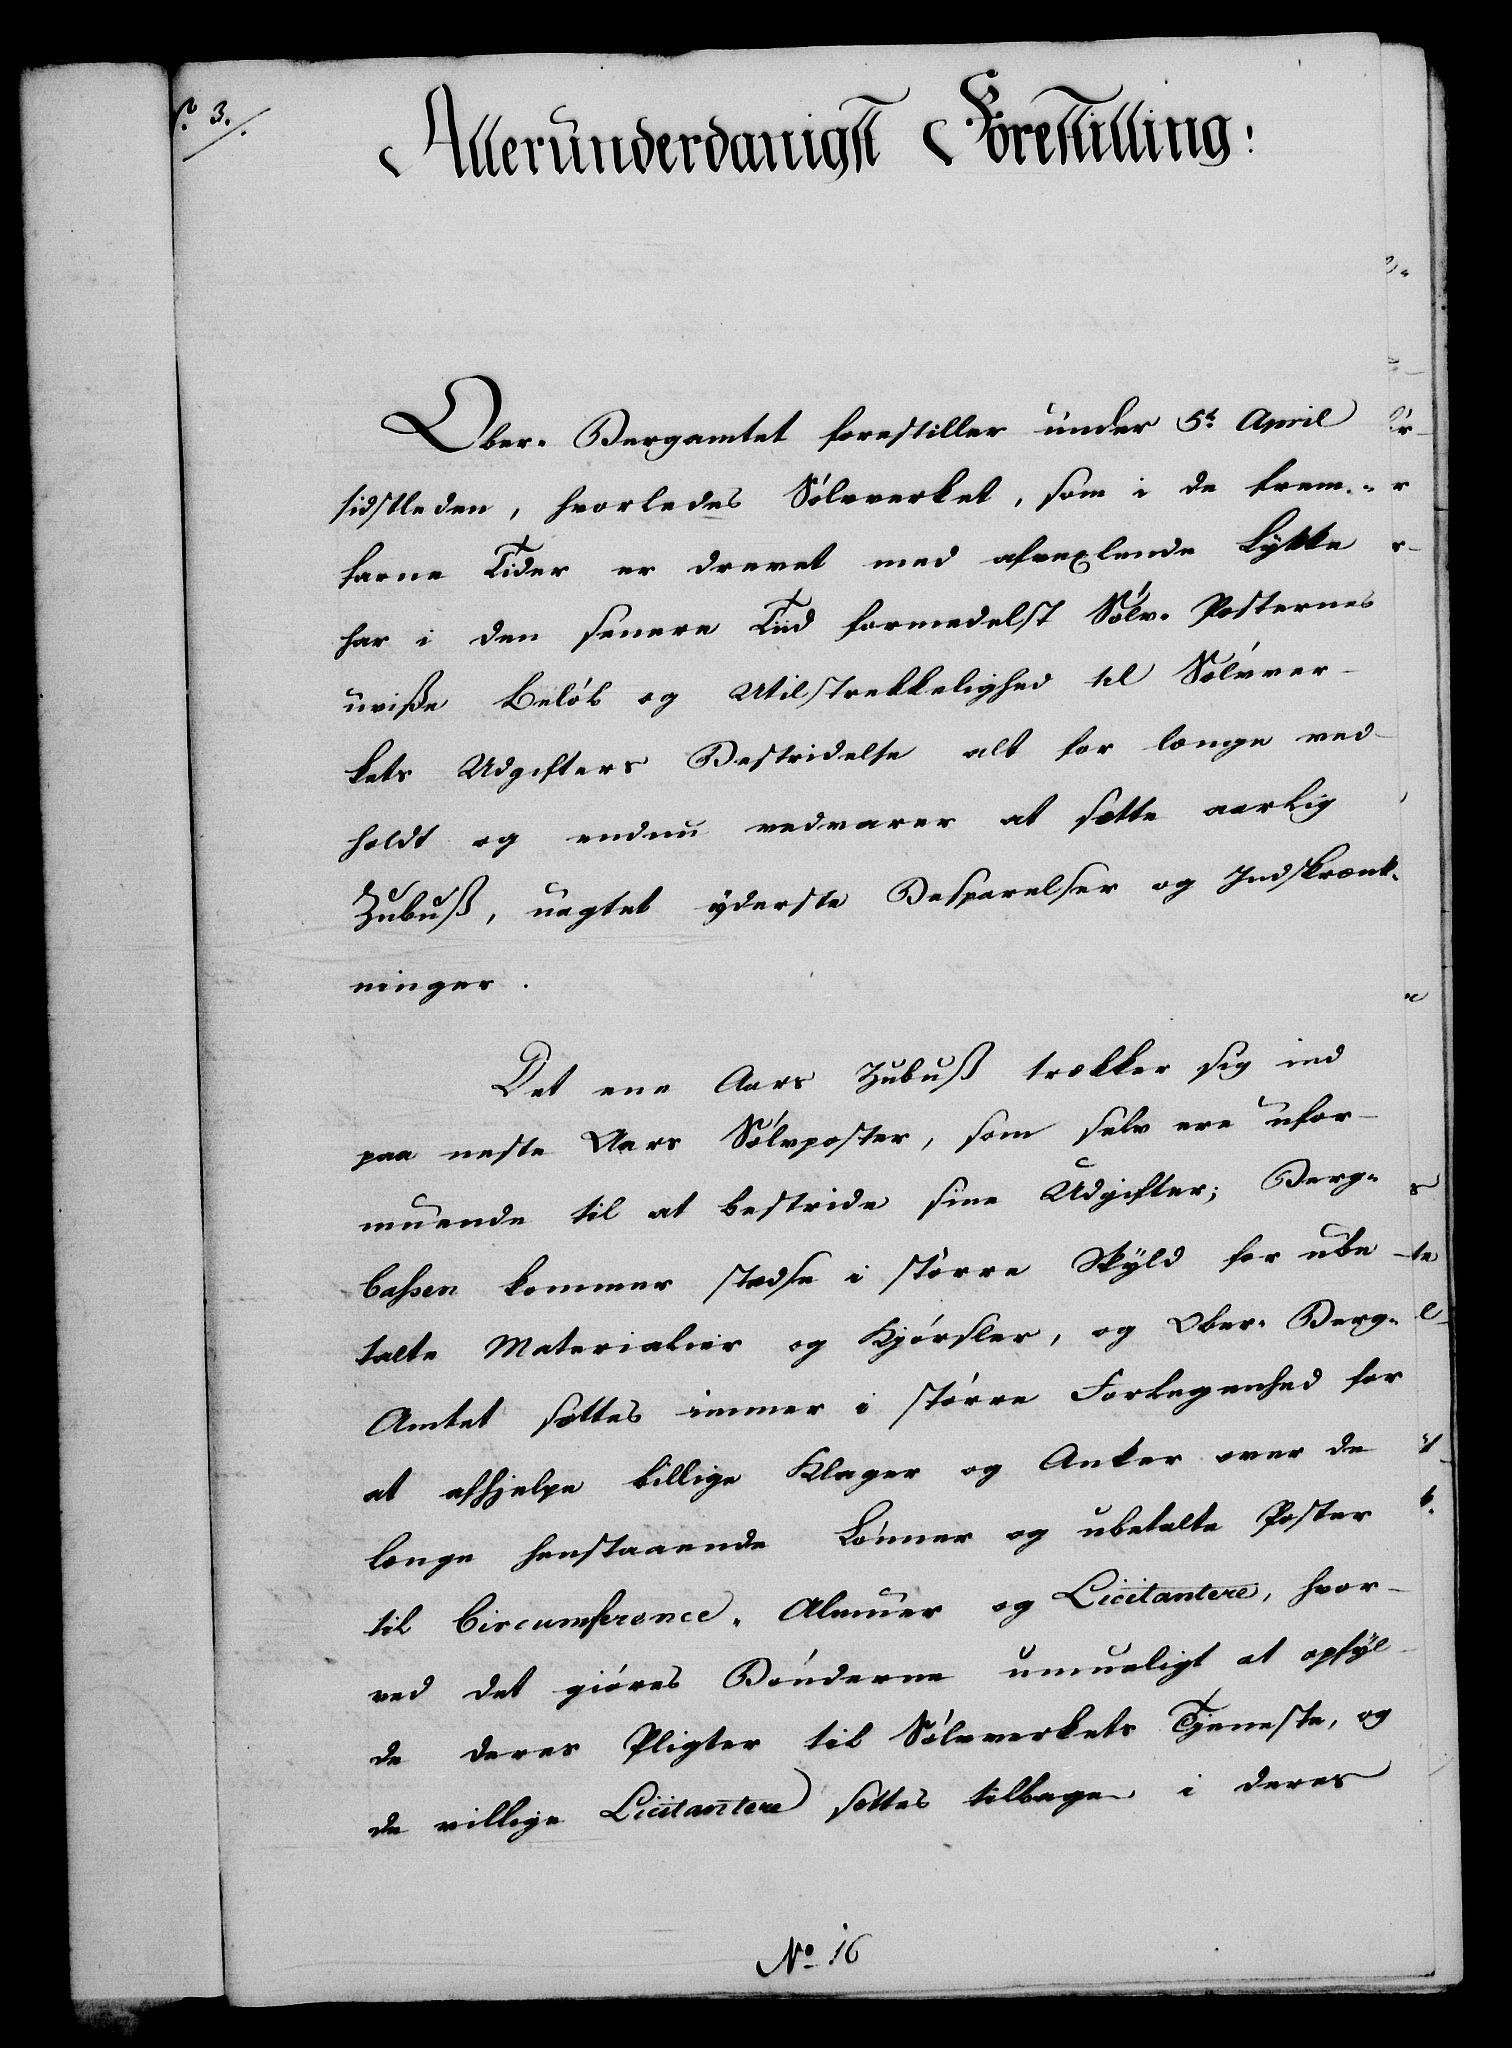 3./.
Allerunderdanigst Forestilling:
Ober-Bergamtet forestiller under 5t April
sidstleden, hvorledes Sølvverket, som i de frem-
farne Tider er drevet med afvexlende Lykke
har i den senere Tiid formedelst Sølv-Posternes
uviße Beløb og Utilstrekkelighed til Sølvver-
kets Udgifters Bestridelse alt for længe ved-
holdt og endnu vedvarer at sætte aarlig
Zubuß, uagtet yderste Besparelser og Indskrænk-
ninger.
Det ene Aars Zubuß trækker sig ind
paa neste Aars Sølvposter, som selv ere ufor-
muende til at bestride sine Udgifter; Berg-
Cahsen kommer stedse i større Skyld for ube-
talte Materialier og Kjørsler, og Ober-Berg-
Amtet sættes immer i større Forlegenhed for
at afhjelpe billige Klager og Anker over de
længe henstaaende Lønner og ubetalte Poster
til Circumference-Almuer og Licitantere, hvor-
ved det giøres Bønderne umueligt at opfyl-
de deres Pligter til Sølvverkets Tjeneste, og
de villige Licitantere settes tilbage i deres
No 16